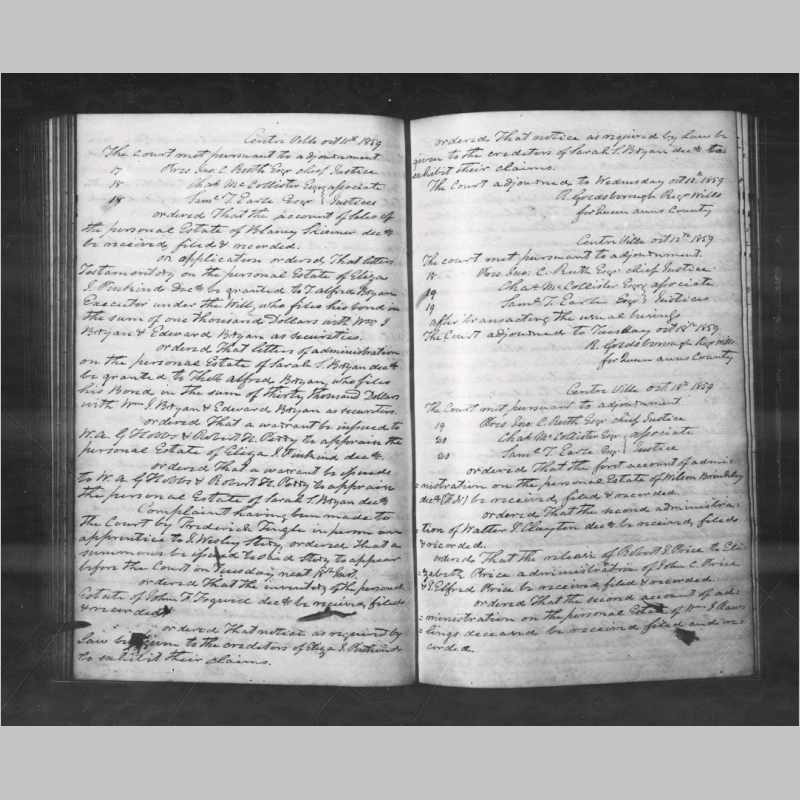 Centre Ville oct 11th 1859
The Court met pursuant to adjournment
17 Pres Jno. C. Ruth Esqr chief Justice
18 Chas McCollister Esqr associate
18 Saml T. Earle Esqr Justices
ordered That the account of Sales of
the personal Estate of Skinner decd
be received filed & recorded.
on application ordered That letters
Testamentary on the personal Estate of Eliza
J. decd be granted to T. Alford Bryan
Executor under the Will, who files his bond in
the sum of one thousand Dollars with Wm J
Bryan & Edward Bryan as securities.
ordered That letters of administration
on the personal Estate of Sarah S. Bryan decd
be granted to Alford Bryan, who files
his Bond in the sum of thirty thousand Dollars
with Wm J. Bryan & Edward Bryan as securities.
ordered That a warrant be issued to
W. A. G Hobbs & Robert H. Perry to appraise the
personal Estate of Eliza J. decd.
ordered That a warrant be issued
to W. A. G Hobbs & Robert H. Perry to appraise
the personal Estate of Sarah S. Bryan decd
Complaint having been made to
the Court by Frederick Tingle in person an
apprentice to J. Wesly Story, ordered That a
summons be issued to said Story to appear
before the Court on Tuesday next 18th Inst.
ordered That the inventory of the personal
Estate of John F. decd be received, filed
& recorded
ordered That notice as required by
Law be given to the creditors of Eliza J.
to exhibit their claims.
ordered That notice as required by Law be
given to the creditors of Sarah S. Bryan decd to
exhibit their claims.
The Court adjourned to Wednesday oct 12th 1859
R. Goldsborough Regr Wills
for Queen anns County
Centre Ville oct 12th 1859
The court met pursuant to adjournment.
18 Pres Jno. C. Ruth Esqr chief Justice
19 Chas McCollister Esqr associate
19 Saml T. Earle Esqr Justices
after transacting the usual
The Court adjourned to Tuesday oct 18th 1859
R. Goldsborough Regr Wills
for Queen anns County
Centre Ville oct 18th 1859
The Court met pursuant to adjournment
19 Pres Jno C. Ruth Esqr chief Justice
20 Chas McCollister Esqr associate
20 Saml T. Earle Esqr Justice
ordered That the first account of admi-
nistration on the personal Estate of Wilson
decd be received, filed & recorded
ordered That the second administra-
tion of Walter J. Clayton decd be received, filed
& recorded.
ordered That the release of Robert J. Price to Eli-
zabeth Price administration of John C. Price
& J. Elford Price be received filed & recorded.
ordered That the second account of ad-
ministration on the personal Estate of Wm J. Raw-
lings deceased be received filed and re-
corded.